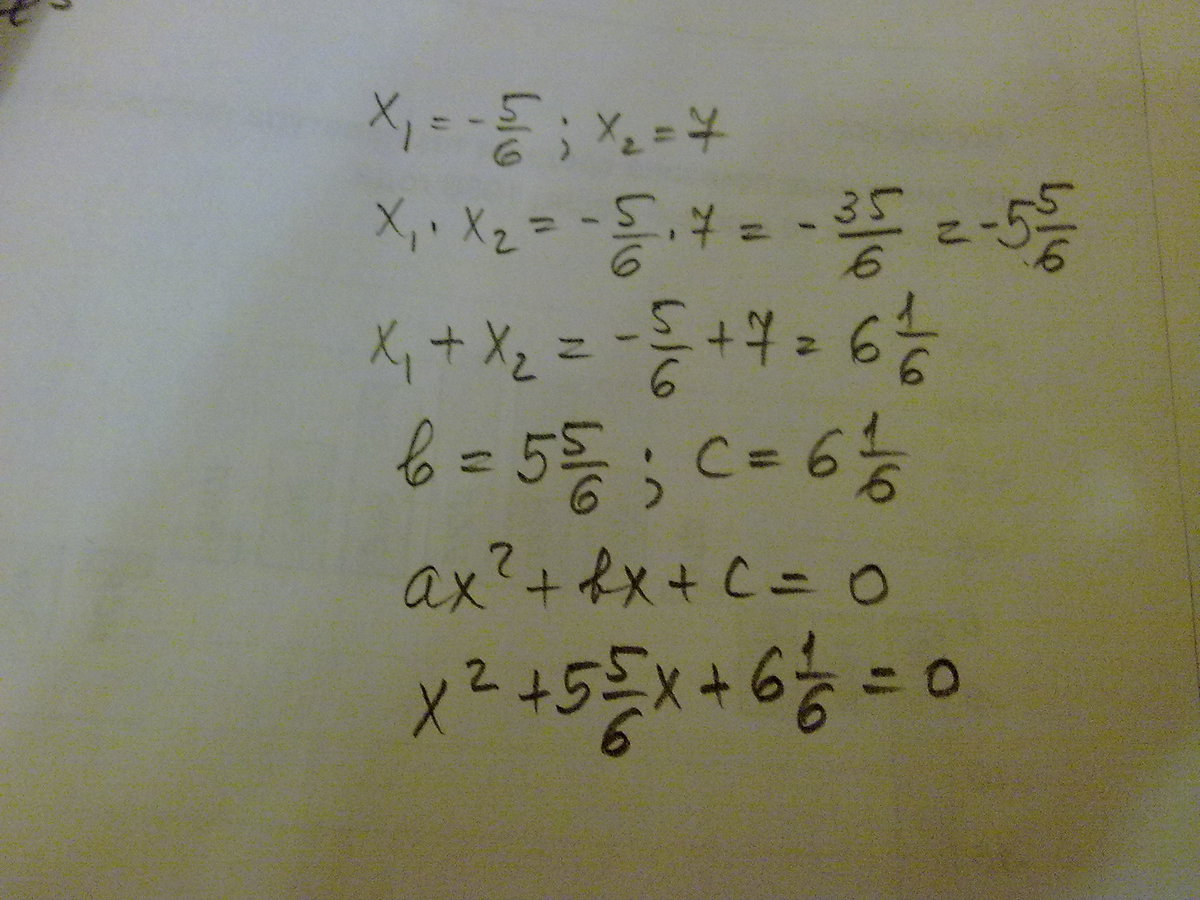 x₁ = -5/6 ; x₂ = 7
x₁ · x₂ = -5/6 · 7 = -35/6 = -5 5/6
x₁ + x₂ = -5/6 + 7 = 6 1/6
b = 5 5/6 ; c = 6 1/6
ax² + bx + c = 0
x² + 5 5/6 x + 6 1/6 = 0